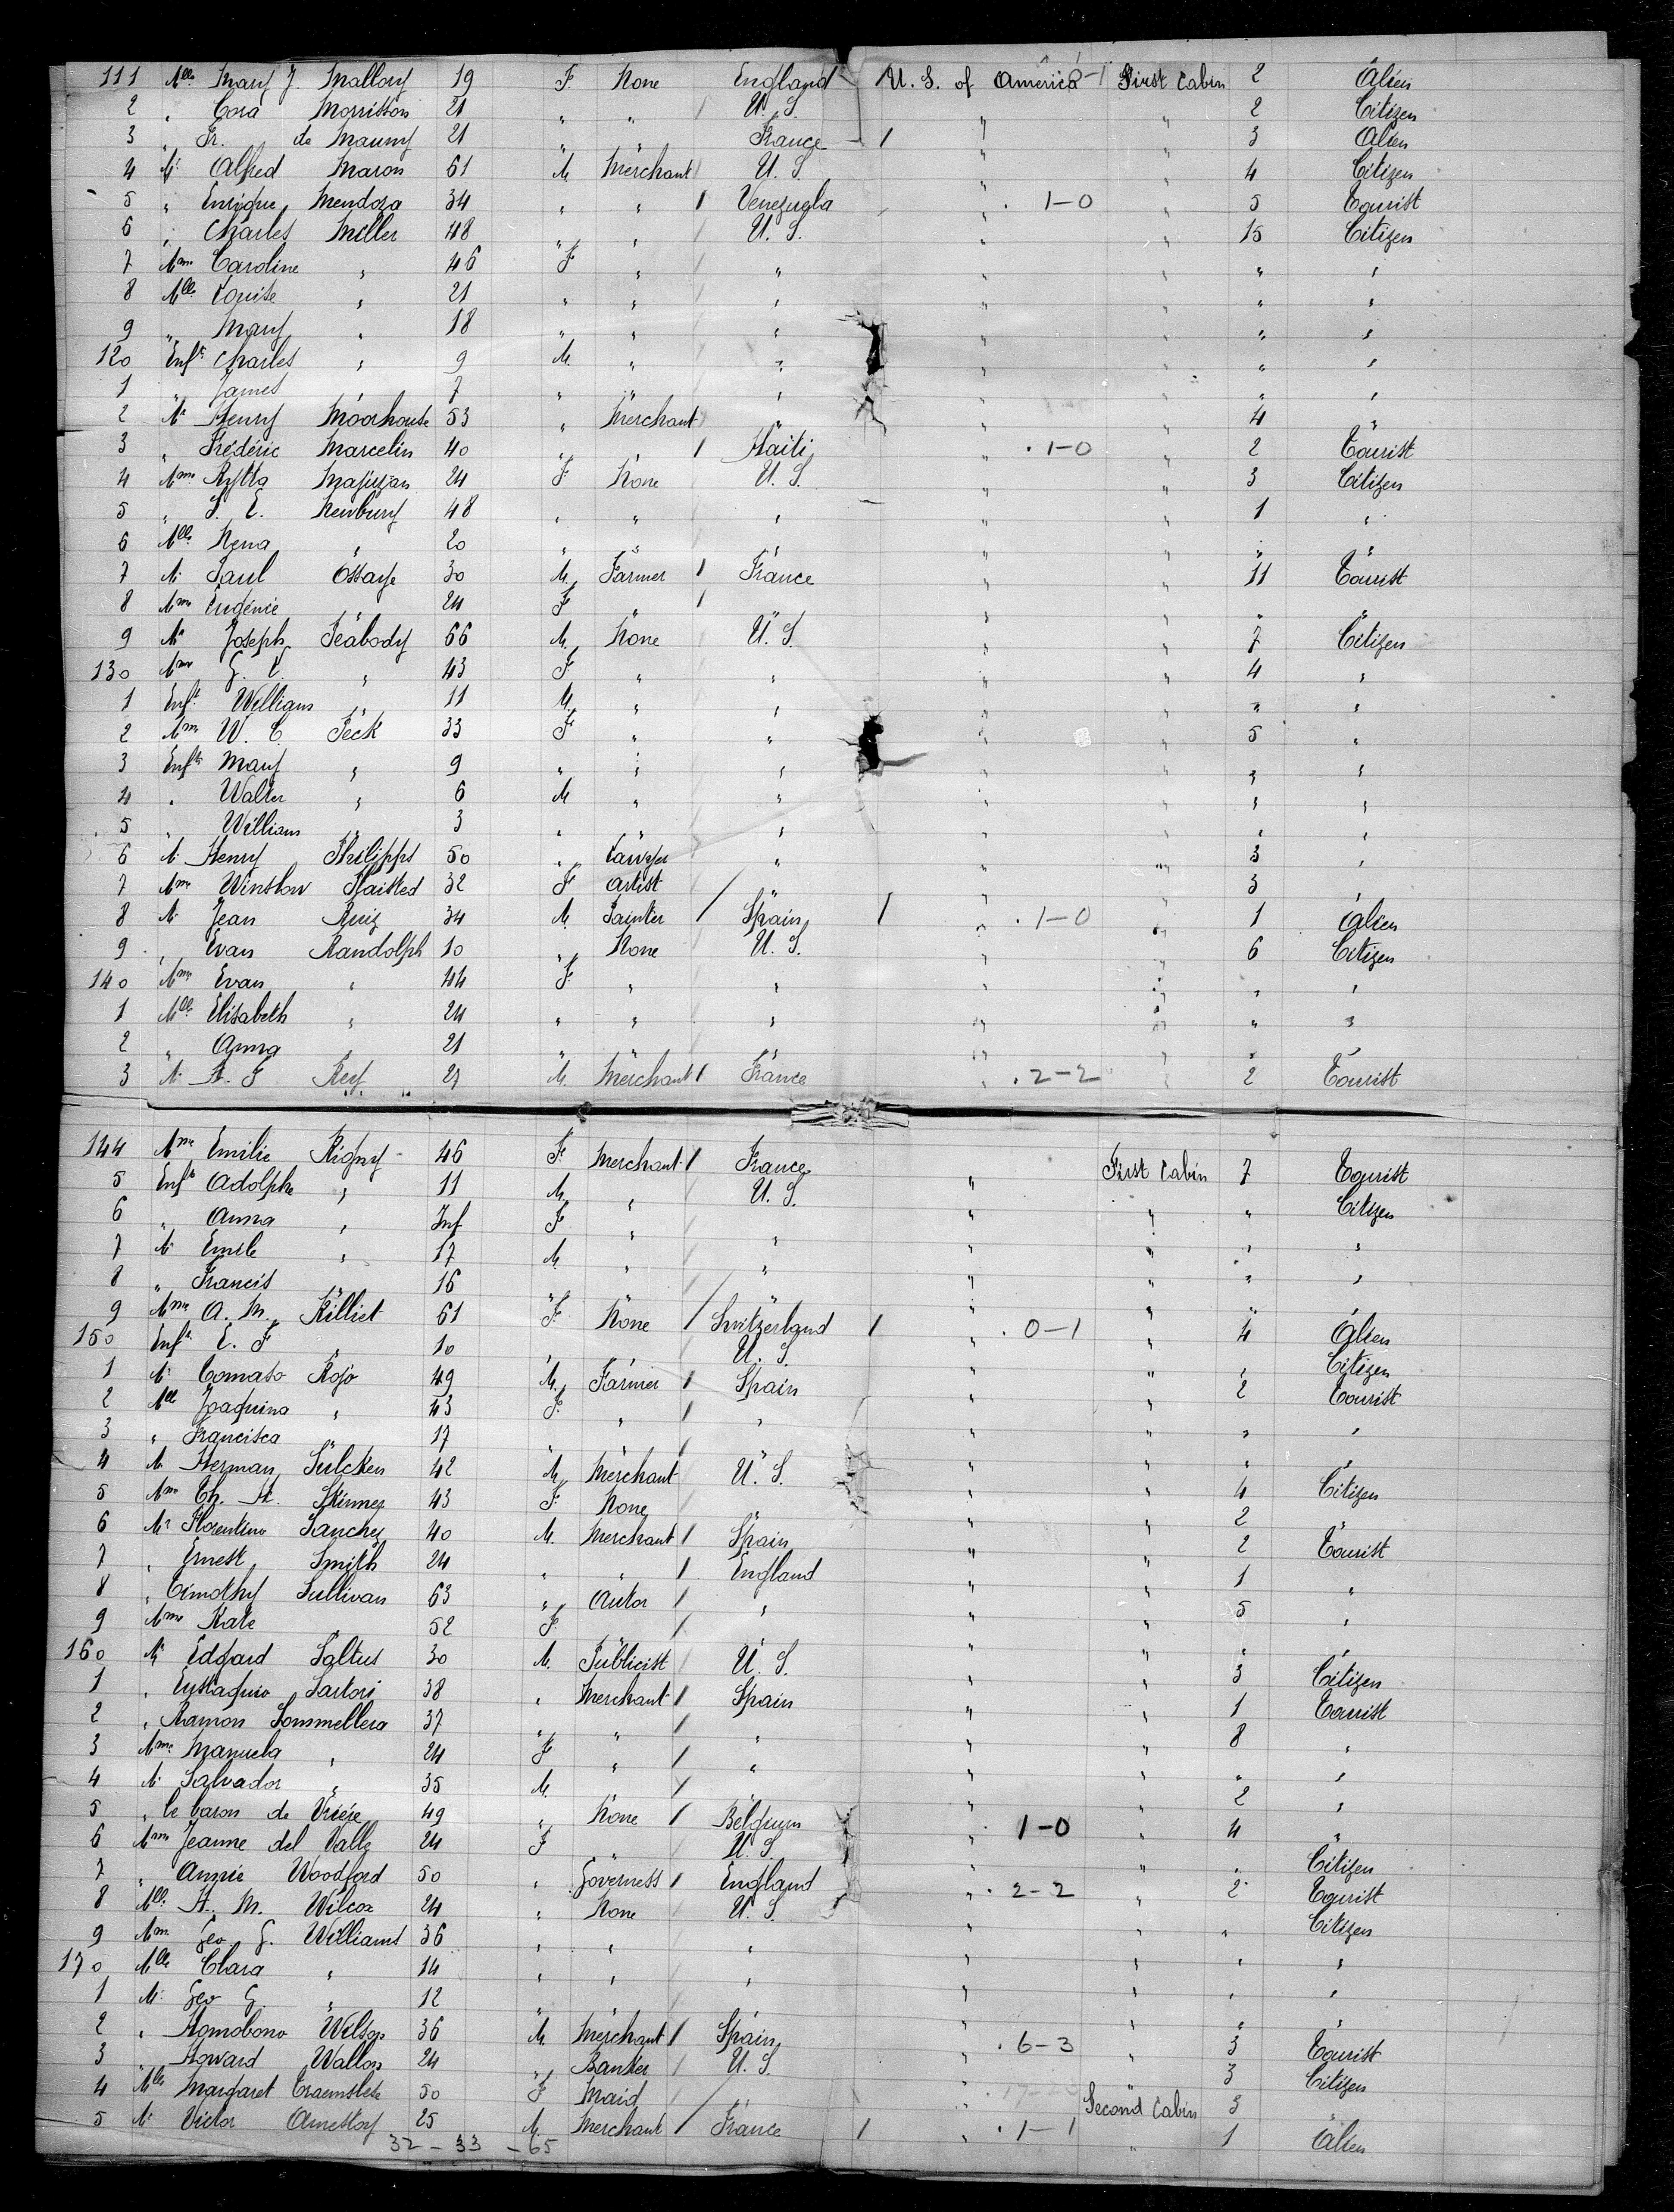 111 Mlle Mary J. Mallory 19 F. None England 1 U. S. of America -1 First Cabin 2 Alien
2 " Cora Morrisson 21 " " / U. S. " " 2 Citizen
3 " Fr. de Mauny 21 " France 1 " " 3 Alien
4 Mr Alfred Maron 61 M. Merchant / U. S. " " 4 Citizen
5 " Enrique Mendoza 34 " " / Venezuela " 1-0 " 5 Tourist
6 " Charles Miller 48 " " U. S. " " 15 Citizen
7 Mme Caroline " 46 F " " " " " "
8 Mlle Louise " 21 " " " " " " "
9 " Mary " 18 " " " " " " "
120 Enft Charles " 9 M. " " " " " "
1 " James " 7 " " " " " " "
2 Mr Henry Moorhouse 53 " Merchant " " " 4 "
3 " Frédéric Marcelin 40 " " / Haiti " 1-0 " 2 Tourist
4 Mme 24 F None U. S. " " 3 Citizen
5 " S. E. Newbury 48 " " " " " 1 "
6 Mlle Nena " 20 " " " " " " "
7 Mr Paul Ossaye 30 M. Farmer / France " " 11 Tourist
8 Mme Eugénie " 24 F " / " " " "
9 Mr Joseph Peabody 66 M. None U. S. " " 7 Citizen
130 Mme G. " 43 F " " " " 4 "
1 Enft William " 11 M. " " " " " "
2 Mme W. C. Peck 33 F " " " " 5 "
3 Enft Mary " 9 " " " " " " "
4 " Walter " 6 M " " " " " "
5 " William " 3 " " " " " " "
6 Mr Henry Philipps 50 " Lawyer " " " 3 "
7 Mme Winslow Plaisted 32 F artist " " " 3 "
8 Mr Jean Ruiz 34 M. Painter / Spain 1 " 1-0 " 1 Alien
9 " Evan Randolph 10 " None U. S. " " 6 Citizen
140 Mme Evan " 44 F. " " " " " "
1 Mlle Elisabeth " 24 " " " " " " "
2 " Anna " 21 " " " " " " "
3 Mr A. F Rey 27 M. Merchant / France " 2-2 " 2 Tourist
144 Mme Emilie Rigny 46 F. Merchant / France " First Cabin 7 Tourist
5 Enft Adolphe " 11 M. " U. S. " " " Citizen
6 " Anna " Inf F " " " " " "
7 Mr Emile " 17 M. " " " " " "
8 " Francis " 16 " " " " " " "
9 Mme A. M. Rilliet 61 F None / Switzerland 1 " 0-1 " 4 Alien
150 Enft E. F " 10 " " U. S. " " " Citizen
1 Mr Tomaso Rojo 49 M. Farmer / Spain " " 2 Tourist
2 Mlle Joaquina " 43 F. " / " " " " "
3 " Francisca " 17 " " / " " " " "
4 Mr Herman Sulcken 42 M. Merchant U. S. " " 4 Citizen
5 Mme Th. H. Skinner 43 F. None " " " 2 "
6 Mr Florentino Sanchez 40 M. Merchant / Spain " " 2 Tourist
7 " Ernest Smith 24 " " / England " " 1 "
8 " Timothy Sullivan 63 " Autor / " " " 5 "
9 Mme Kate " 52 F. " / " " " " "
160 Mr Edgard Saltus 30 M. Publicist U. S. " " 3 Citizen
1 " Eustaquio Sartori 38 " Merchant / Spain " " 1 Tourist
2 " Ramon Sommellera 37 " " / " " " 8 "
3 Mme Manuela " 24 F " / " " " " "
4 Mr Salvador " 35 M. " / " " " 2 "
5 " le baron de Vrière 49 " None / Belgium " 1-0 " 4 "
6 Mme Jeanne del Valle 24 F " U. S. " " " Citizen
7 " Annie Woodford 50 " Governess / England " 2-2 " 2 Tourist
8 Mlle H. M. Wilcox 24 " None U. S. " " " Citizen
9 Mme Geo G. Williams 36 " " " " " " "
170 Mlle Clara " 14 " " " " " " "
1 Mr Geo G. " 12 " " " " " " "
2 " Homobono Wilson 36 M. Merchant / Spain " 6-3 " 3 Tourist
3 " Howard Wallon 24 " Banker U. S. " " 3 Citizen
4 Mlle Margaret 50 F Maid " " Second Cabin 3 "
5 Mr Victor 25 M. Merchant / France 1 " 1-1 " 1 Alien
32 - 33 - 65